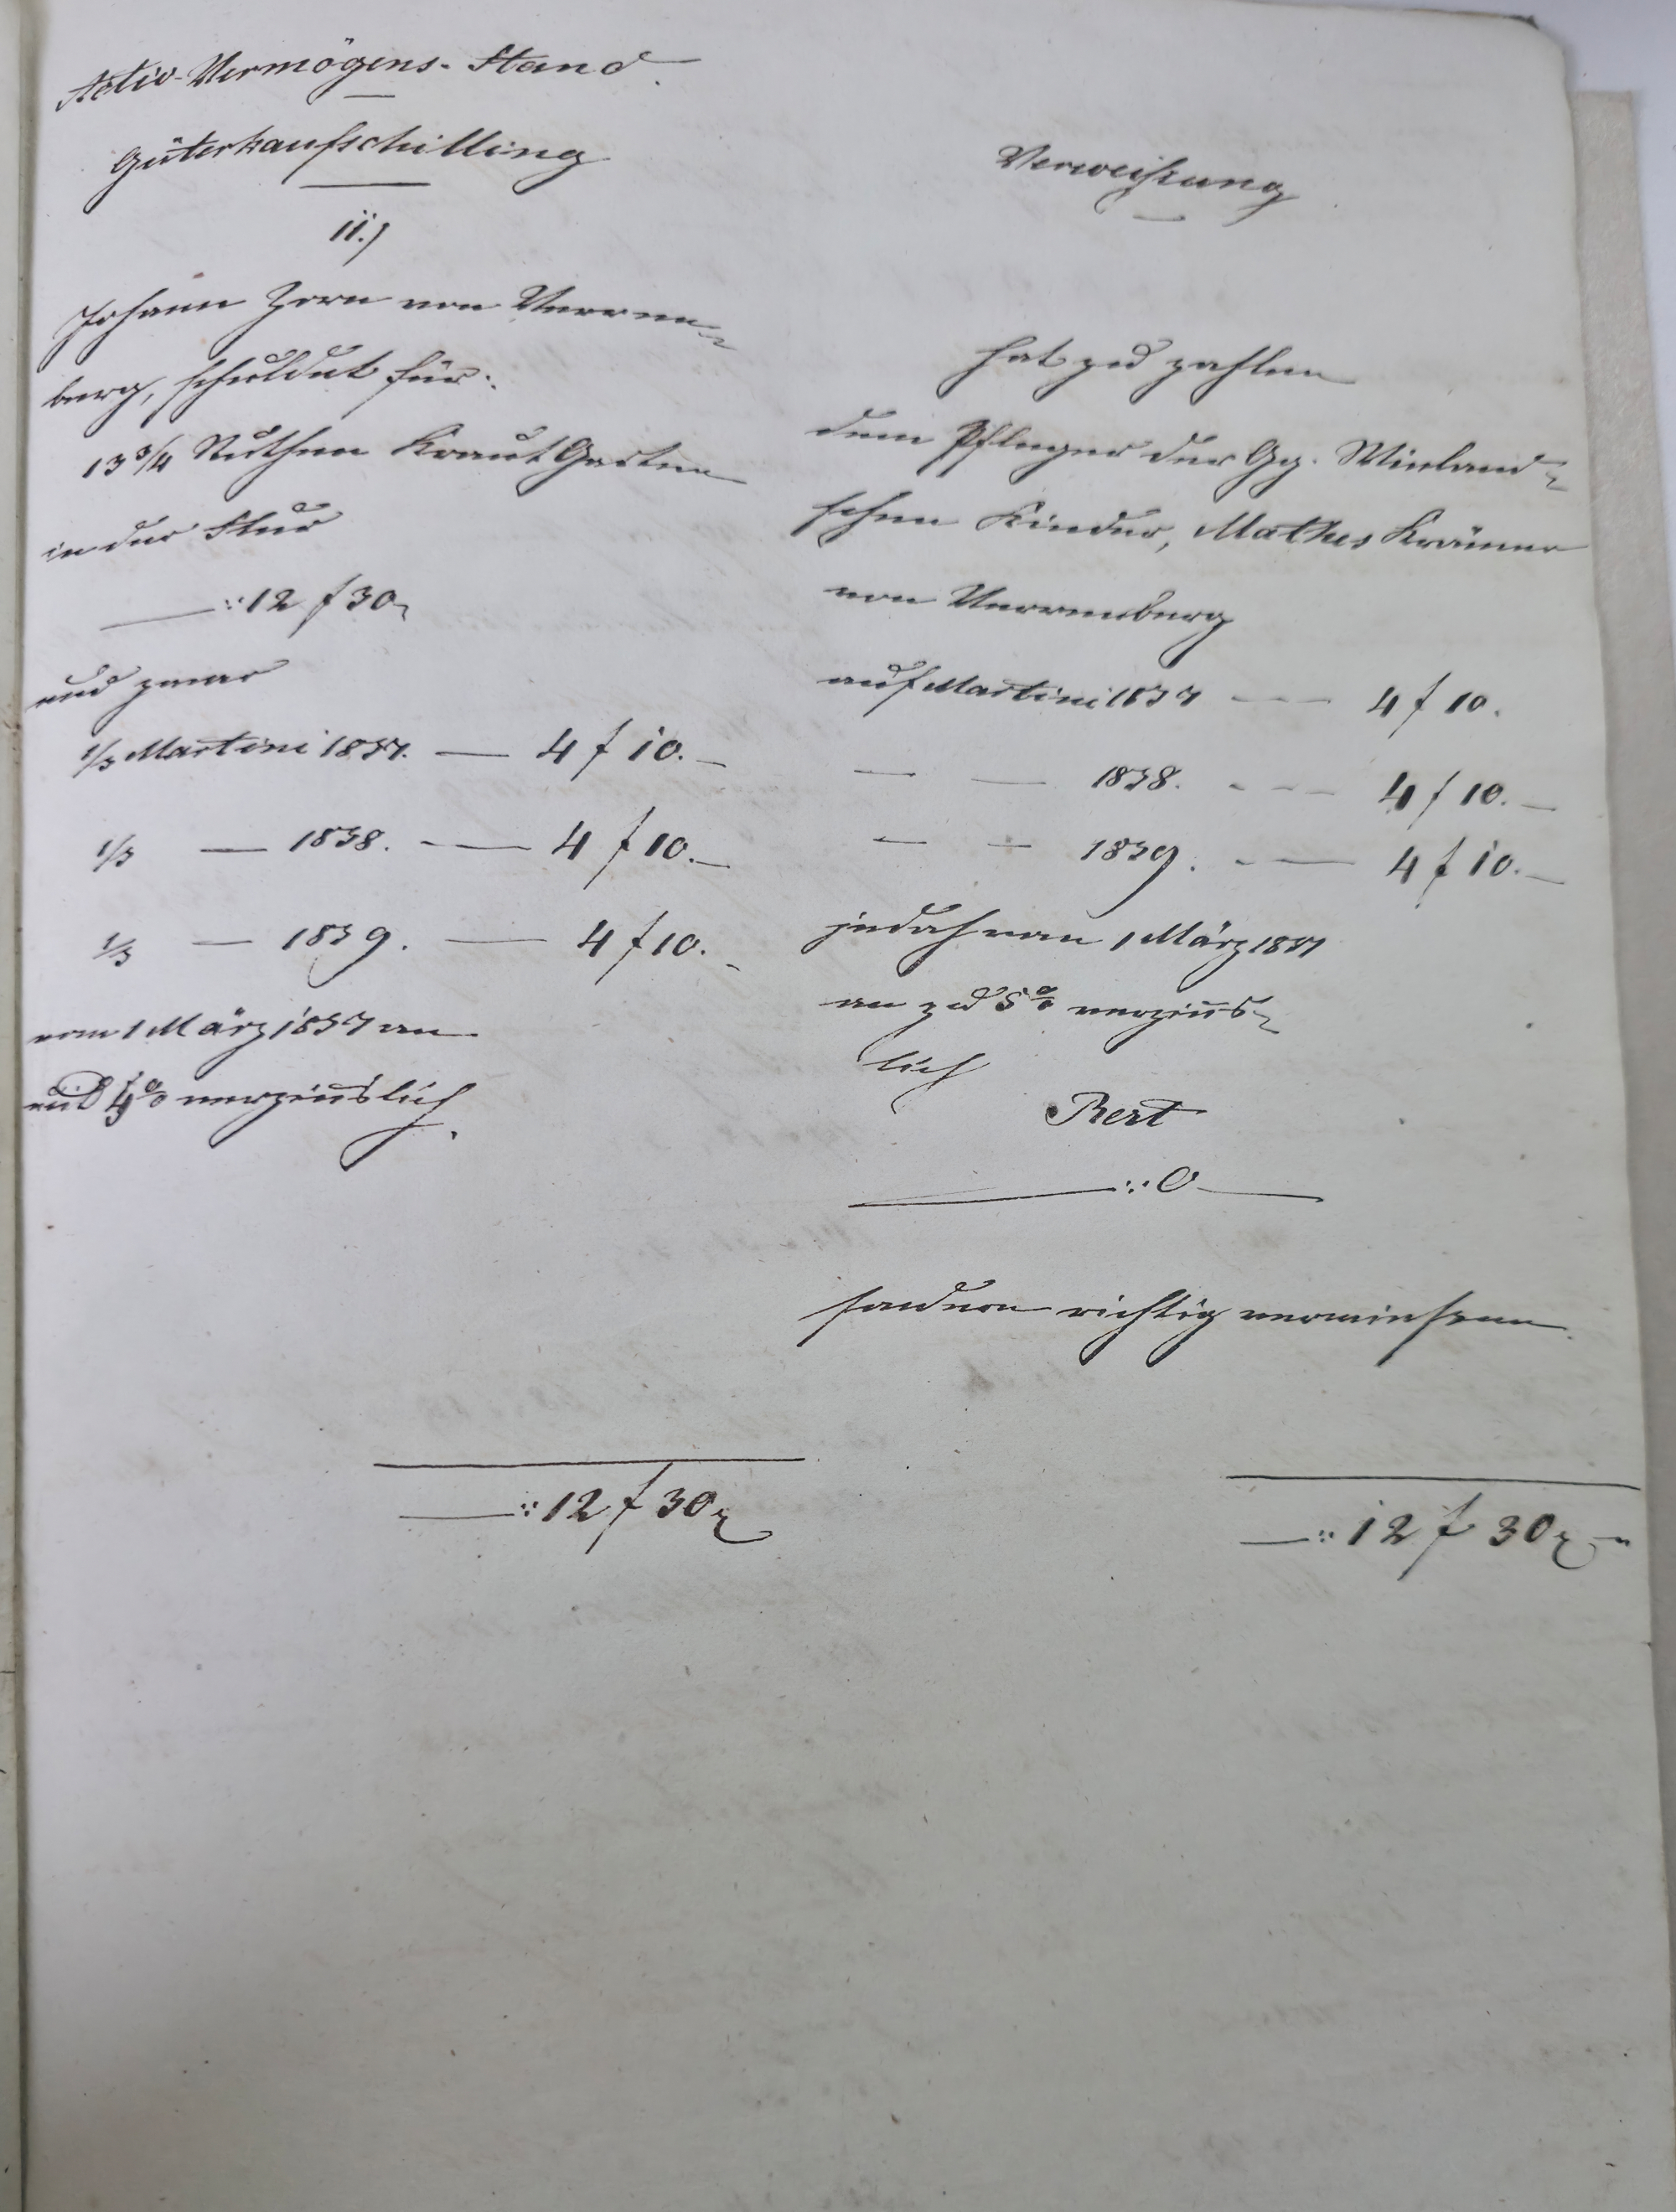 Activ-Vermögens-Stand.
Güterkaufschilling
11.)
Johann Zorn von Verren-
berg, schuldet für:
13 3/4 Ruthen Kraut Garten
in der
—:: 12 f 30
und zwar
1/3 Martini 1837. — 4 f 10. —
1/3 — 1838. — 4 f 10. —
1/3 — 1839. — 4 f 10. —
vom 1 März 1837 an
mit % verzinslich.
Verweißung
hat zu zahlen
dem Pfleger der Gg. Wieland-
schen Kinder, Mathes Krämer
von Verrenberg
auf Martini 1837 — 4 f 10.
— — 1838. — 4 f 10. —
— — 1839. — 4 f 10. —
jedoch vom 1 März 1837
an zu 5 % verzins-
lich
Rest
—:: 0 —
sondern richtig verwiesen.
—:: 12 f 30
—:: 12 f 30